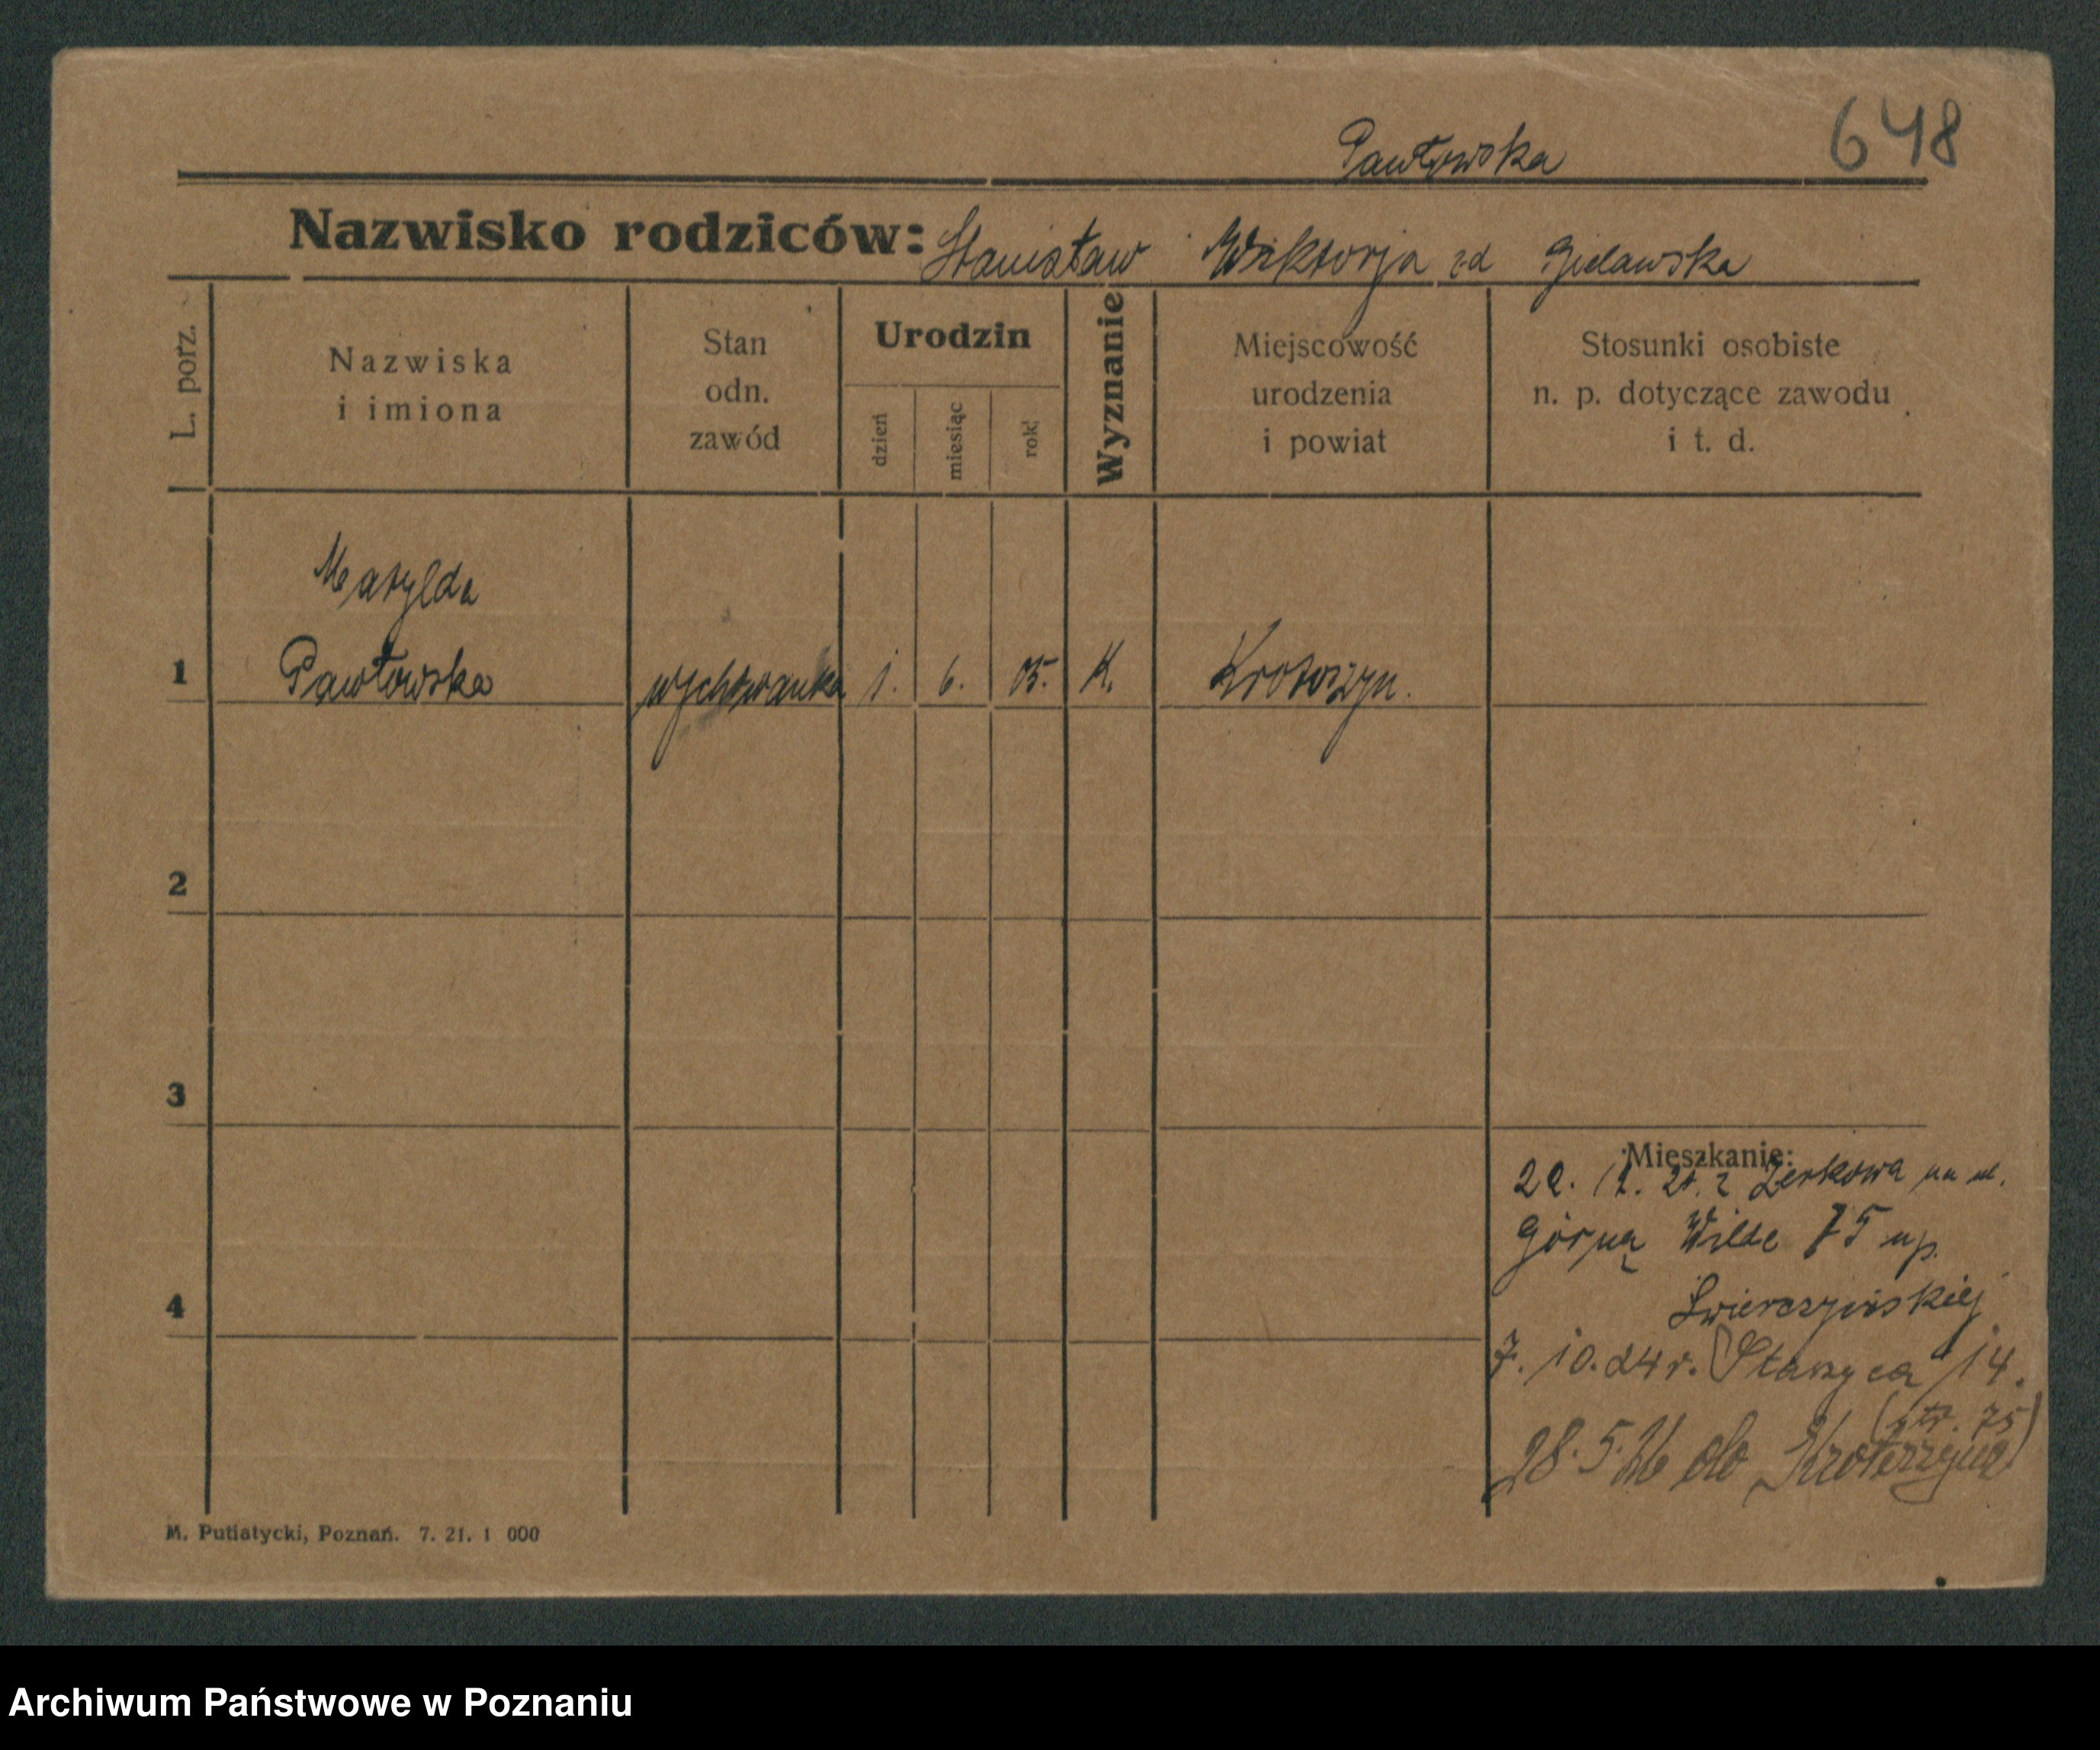 648
Pawłowska
Nazwisko rodziców: Stanisław Wiktorja zd Gielawska
L. porz.
Nazwiska
i imiona
Stan
odn.
zawód
Urodzin
dzień
miesiąc
rok
Wyznanie
Miejscowość
urodzenia
i powiat
Stosunki osobiste
n. p. dotyczące zawodu
i t. d.
Matylda
1 Pawłowska wychowanka 1. 6. 05. K. Krotoszyn.
2
3
4
Mieszkanie:
22. 12. 21. z Żerkowa na ul.
Górną Wilde 75 up.
Świerczyńskiej
7. 10. 24 r. Staszyca 14.
(str. 75)
28. 5. 26 do Krotoszyna
M. Putiatycki, Poznań. 7. 21. 1 000
Archiwum Państwowe w Poznaniu